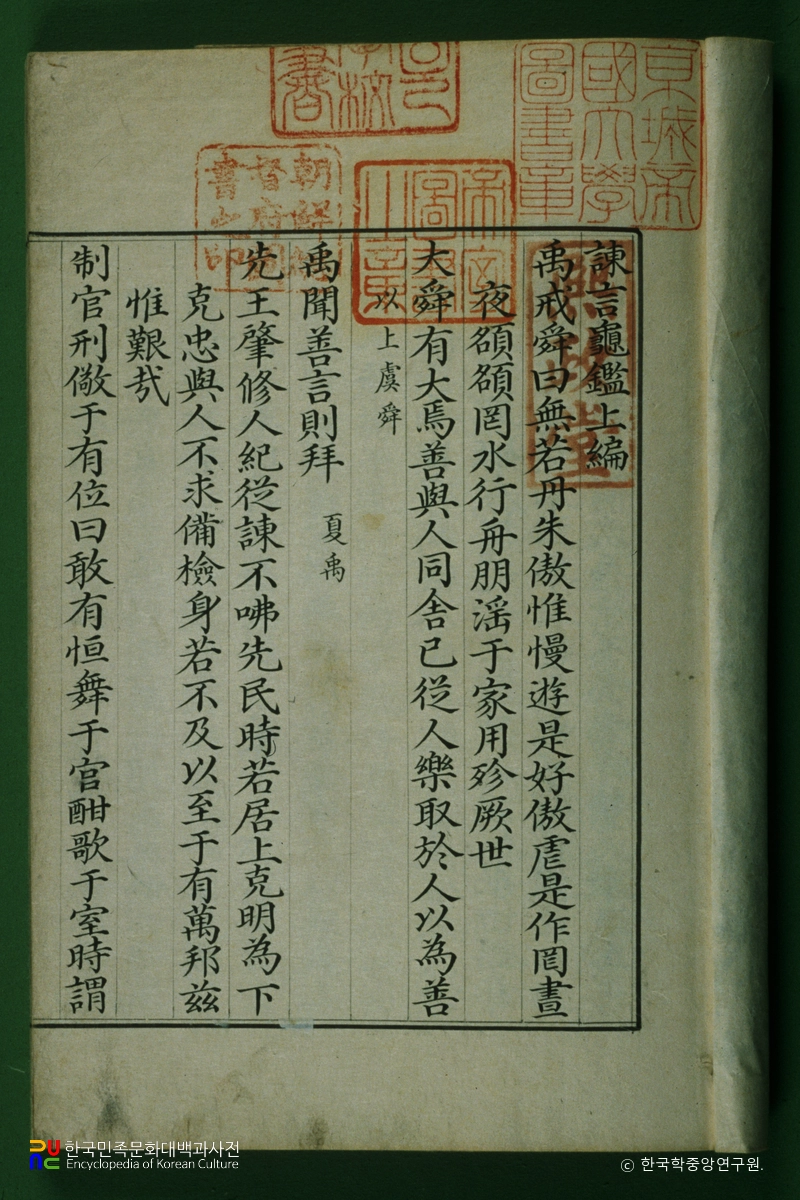 諫言龜鑑上編
禹戒舜曰無若丹朱傲惟慢遊是好傲虐是作罔晝
夜頟頟罔水行舟朋滛于家用殄厥世
大舜有大焉善與人同舍已從人樂取於人以為善
以上虞舜
禹聞善言則拜 夏禹
先王肇修人紀從諫不咈先民時若居上克明為下
克忠與人不求備檢身若不及以至于有萬邦兹
惟艱㢤
制官刑儆于有位曰敢有恒舞于官酣歌于室時謂
京城帝
國大學
圖書章
朝鮮總
督府圖
書之印
한국민족문화대백과사전
Encyclopedia of Korean Culture
© 한국학중앙연구원.